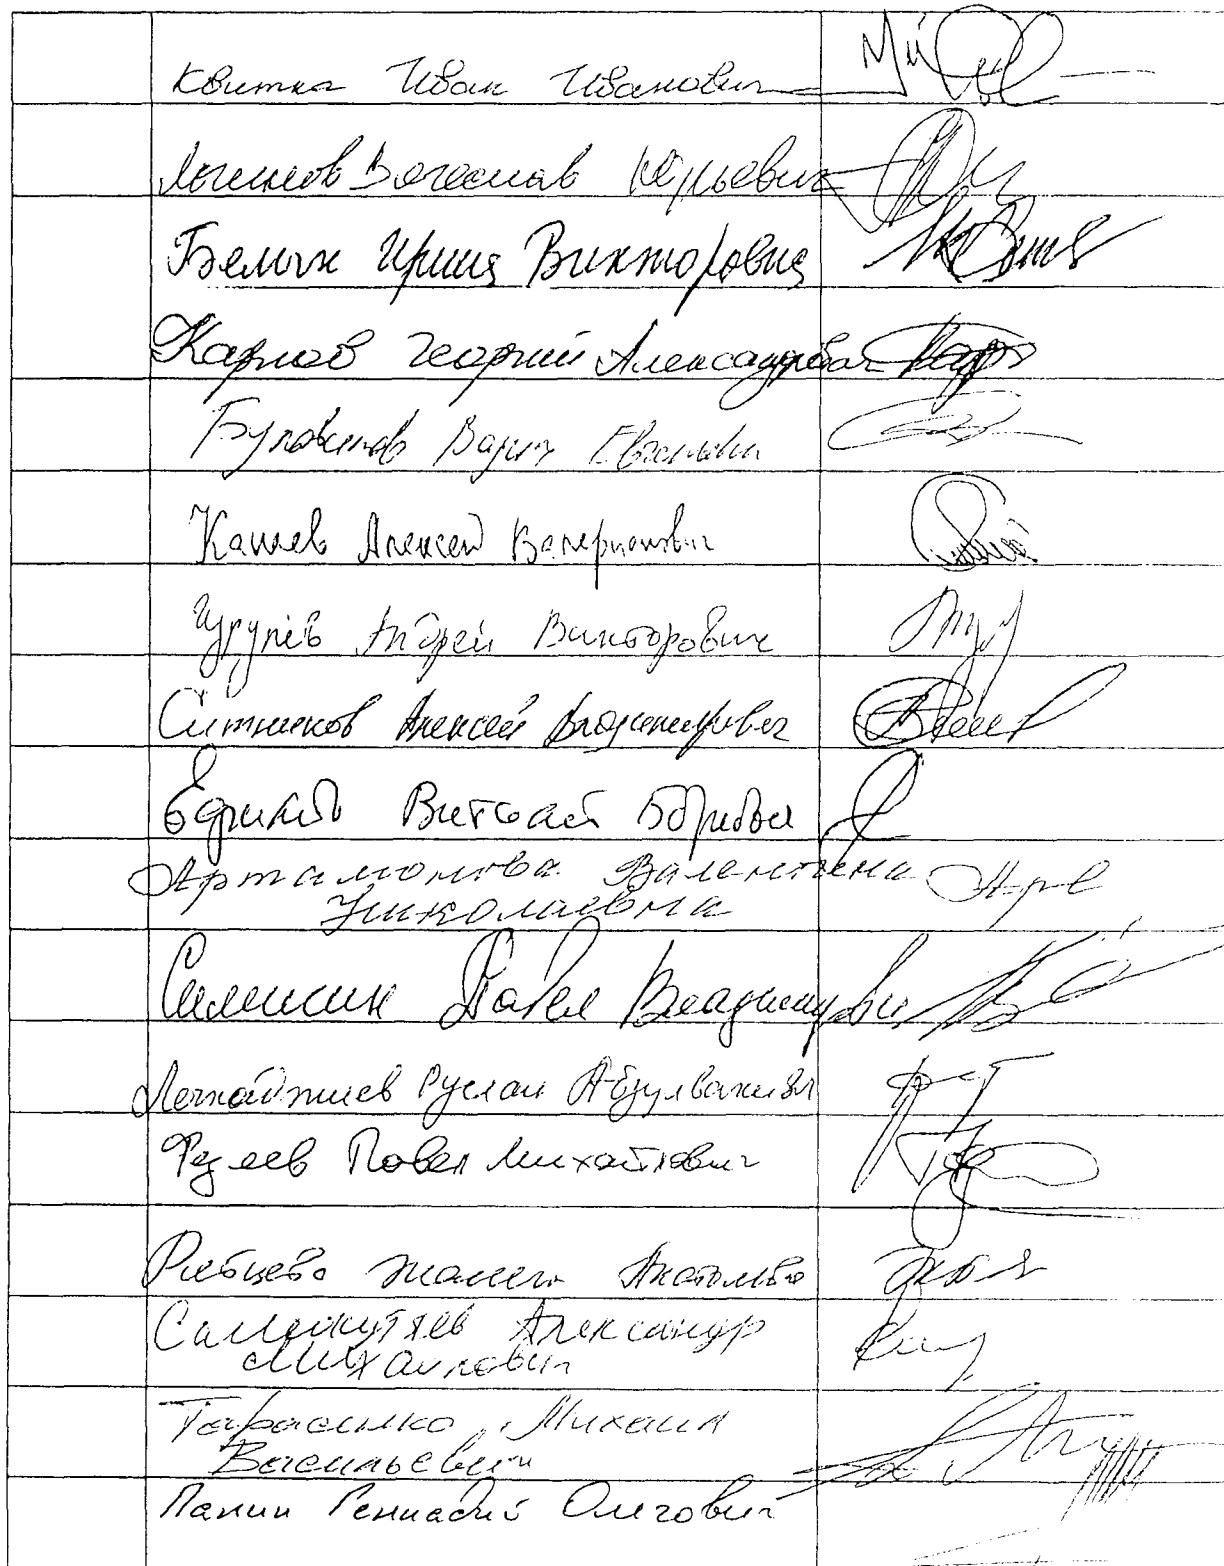 Квитка Иван Иванович
Логинов Вячеслав Юрьевич
Белых Ирина Викторовна
Карлов Георгий Александрович
Булавинов Вадим Евгеньевич
Канаев Алексей Валерианович
Гурулёв Андрей Викторович
Ситников Алексей Владимирович
Ефимов Виталий Борисович
Артамонова Валентина
Николаевна
Симигин Павел Владимирович
Лечхаджиев Руслан Абдулвахи
Федяев Павел Михайлович
Рябцева Жанна Анатольев
Самокутяев Александр
Михайлович
Тарасенко Михаил
Васильевич
Панин Геннадий Олегович